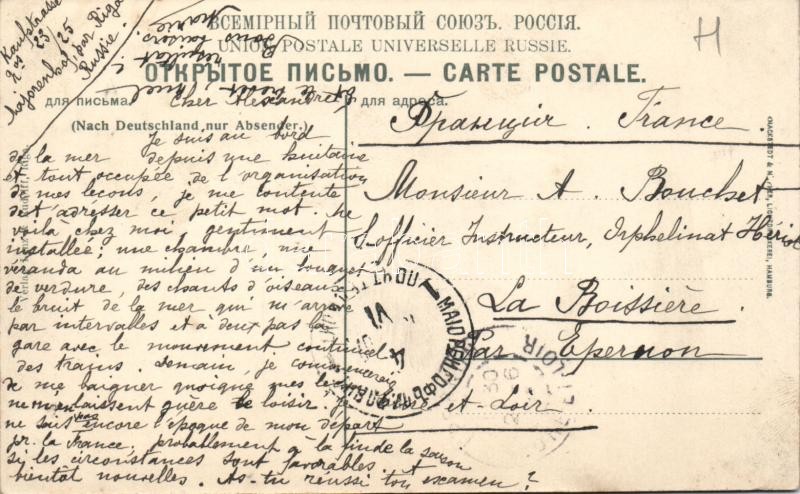 Kaufstrasse
No 23/25
Majorenhof par Riga
Russie
ВСЕМІРНЫЙ ПОЧТОВЫЙ СОЮЗЪ. РОССІЯ.
UNION POSTALE UNIVERSELLE RUSSIE.
ОТКРЫТОЕ ПИСЬМО. — CARTE POSTALE.
для письма.
для адреса.
(Nach Deutschland nur Absender.)
et le résultat?
Bons baisers.
Marie
H
Cher Alexandre,
Je suis au bord
de la mer depuis une huitaine
et tout occupée de l'organisation
de mes leçons, je me contente
de t'adresser ce petit mot. Me
voilà chez moi, gentiment
installée; une chambre, une
veranda au milieu d'un bouquet
de verdure, des chants d'oiseaux
le bruit de la mer qui m'arrive
par intervalles et à deux pas la
gare avec le mouvement continuel
des trains. Demain, je commencerai
de me baigner quoique mes leçons
ne m'en laissent guère le loisir. Je
ne sais pas encore l'époque de mon départ
pr. la France. probablement à la fin de la saison
si les circonstances sont favorables. A
bientôt nouvelles. As-tu réussi ton examen?
Франція. France.
Monsieur A. Bouchet
S-officier Instructeur, Orphelinat Hériot
La Boissière
Par Epernon
Eure et-Loir
4 VI